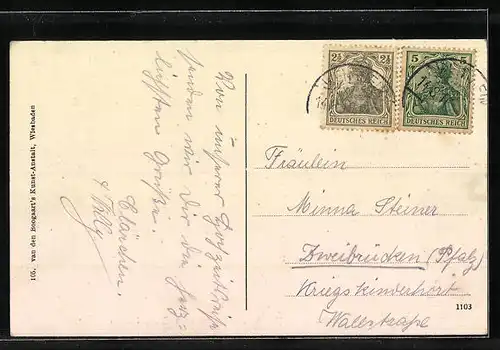 105. van den Boogaart's Kunst-Anstalt, Wiesbaden
Von unserer Hochzeitsreise
senden wir Dir die herz-
lichsten Grüße.
Clärchen.
& Willy
2½ 2½
DEUTSCHES REICH
5 5
DEUTSCHES REICH
Fräulein
Minna Steiner
Zweibrücken (Pfalz)
Kriegskinderhort
Wallstraße
1103